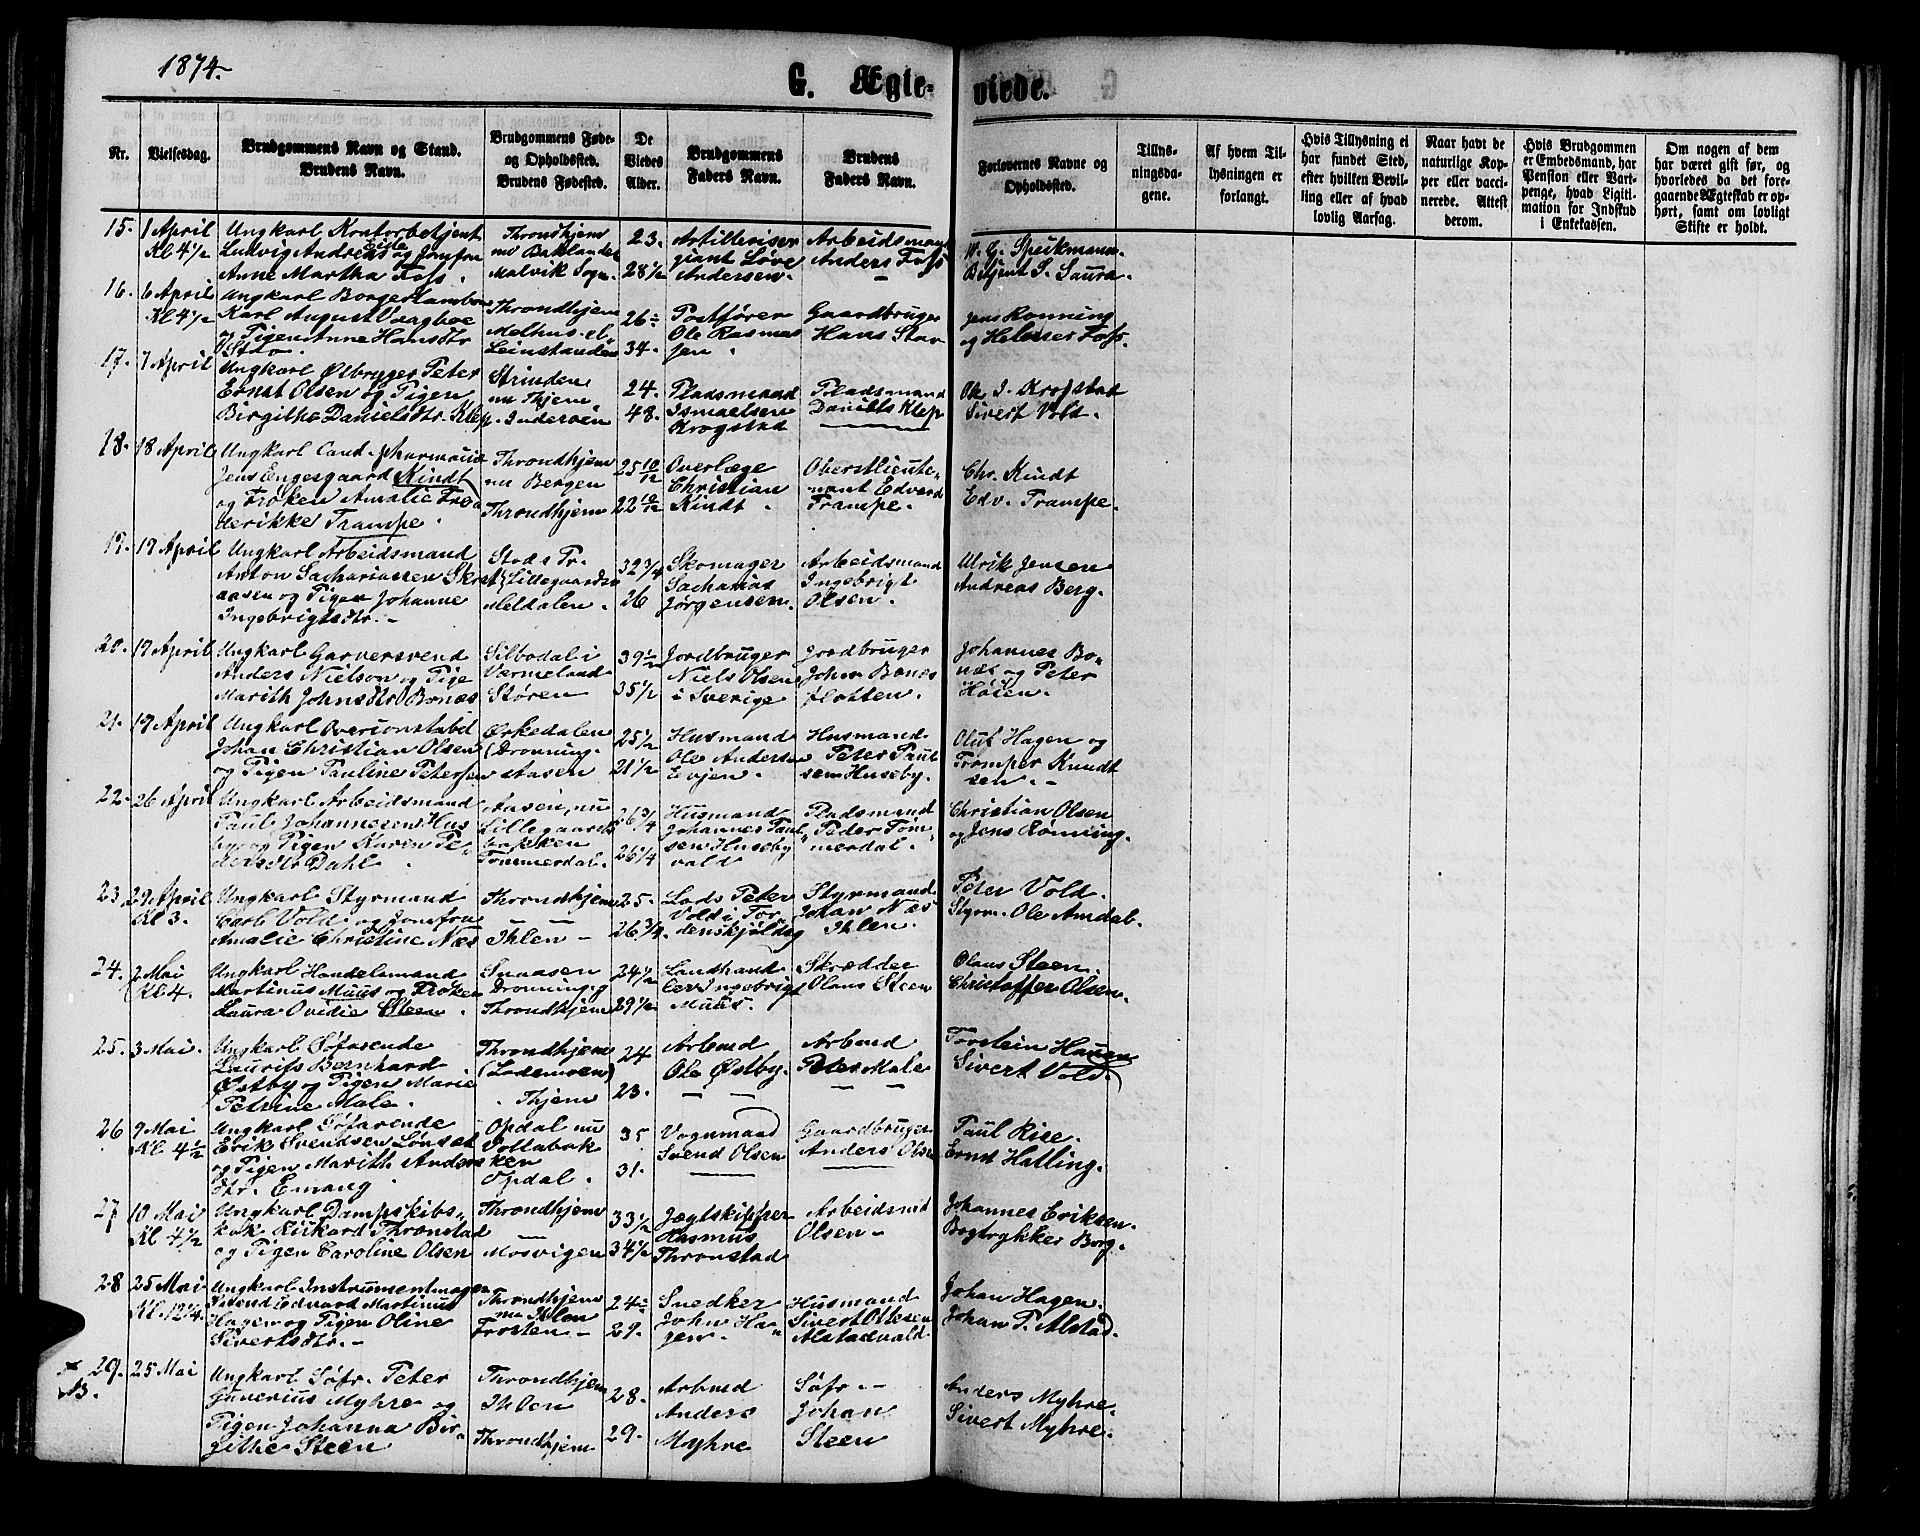 1874.
G. Ægte-
viede.
Nr.
Vielsesdag.
Brudgommens Navn og Stand.
Brudens Navn.
Brudgommens Føde-
og Opholdssted.
Brudens Fødested.
De
Viedes
Alder.
Brudgommens
Faders Navn.
Brudens
Faders Navn.
Forlovernes Navne og
Opholdssted.
Tillys-
ningsda-
gene.
Af hvem Til-
lysningen er
forlangt.
Hvis Tillysning ei
har fundet Sted,
efter hvilken Bevil-
ling eller af hvad
lovlig Aarsag.
Naar havt de
naturlige Kop-
per eller vacci-
nerede. Attest
derom.
Hvis Brudgommen
er Embedsmand, har
Pension eller Vart-
penge, hvad Ligiti-
mation for Indskud
i Enkekassen.
Om nogen af dem
har været gift før, og
hvorledes da det fore-
gaaende Ægteskab er op-
hørt, samt om lovligt
Skifte er holdt.
15.
1 April
Kl 4½
Ungkarl Kontorbetjent
Ludvig Andreas Eide og Jomfru
Anne Martha Foss.
Throndhjem
nu Baklandet
Malvik Sogn.
23.
28½
Artilleriser
giant Løve
Andersen.
Arbeidsmand
Anders Foss
W. G. Speikmann.
Betjent S. Saura.
16.
6 April
Kl 4½
Ungkarl Borger
Karl August Vaagboe
og Pigen Anne Hansdtr
Stav
Throndhjem
Melhus
Leinstanden
26
34.
Postfører
Ole Rasmus
sen.
Gaardbruger
Hans Stav
Jens Rønning
og Helmer Foss.
17.
7 April
Ungkarl Ølbrygger Peter
Ernst Olsen og Pigen
Birgithe Danielsdtr. Klep.
Strinden
nu Thjem
Inderøen
24.
48.
Pladsmand
Ismaelsen
Krogstad
Pladsmand
Daniels Klep
Ole I. Krogstad
Sivert Vold.
18.
18 April
Ungkarl Cand. pharmacie
Jens Engesgaard Kindt
og Frøken Amalie Fre
derikke Trampe.
Throndhjem
nu Bergen
Throndhjem
25 10/12
22 10/12
Overlæge
Christian
Kindt.
Oberstlieute-
nant Edvard
Trampe.
Chr. Kindt
Edv. Trampe.
19.
19 April
Ungkarl Arbeidsmand
Anton Sachariassen Skrat
aasen og Pigen Johanne
Ingebrigtsdtr.-
Stods Pr.
Lillegaardse
Meldalen.
32¾
26
Skomager
Sacharias
Jørgensen.
Arbeidsmand
Ingebrigt
Olsen.
Ulrik Jensen
Andreas Berg.
20.
19 April
Ungkarl Garversvend
Anders Nielson og Pige
Marith Johnsdtr Bonæs
Silbodal i
Værmeland
Støren
39½
35½
Jordbruger
Niels Olsen
i Sverige
Jordbruger
John Bonæs
flotten.
Johannes Bo-
næs og Peter
Høsen.
21.
19 April
Ungkarl Overconstabel
Johan Christian Olsen
og Pigen Pauline Petersen
Ørkedalen
(Dronning.
Aasen
25½
21½
Husmand
Ole Andersen
Evjen.
Husmand
Peter Paul
sen Huseby.
Oluf Hagen og
Tromper Knudt
sen.-
22.
26 April
Ungkarl Arbeidsmand
Paul Johannesen Hus
by og Pigen Karen Pe
dersdtr Dahl.
Aasen, nu
Lillegaards
bakken
Tømmerdal.
26¾
26¼
Husmand
Johannes Paul
sen Huseby
vald
Pladsmand
Peder Tøm-
merdal.
Christian Olsen
og Jens Rønning.
23.
29 April
Kl 3.
Ungkarl Styrmand
Carl Vold og Jomfru
Amalie Christine Næs
Throndhjem
Ihlen -
25.
26¾
Lods Peter
Vold i Tor
denskjoldsg
Styrmand
Johan Næs
Ihlen.
Peter Vold.
Styrm. Ole Amdal.
24.
2 Mai
Kl 4.
Ungkarl Handelsmand
Martinus Muus og Frøken
Laura Ovidie Steen.
Snaasen
Dronning.g
Throndhjem
24½
29½
Landhand
ler Ingebrigt
Muus.
Skrædder
Olaus Steen
Olaus Steen.
Christoffer Olsen.
25.
3 Mai.
Ungkarl Søfarende
Laurits Bernhard
Østby og Pigen Marie
Petrine Male.
Throndhjem
(Lademoen)
Thjem
24
23.
Arbmd
Ole Østby.
Arbmd
Peter Male
Torstein Hauan
Sivert Vold.
26
9 Mai
Kl 4½
Ungkarl Søfarende
Erik Svendsen Lønset
og Pigen Marith Anders
dtr. Emang
Opdal nu
Vollabak
ken
Opdal.
35
31.
Vognmand
Svend Olsen
Gaardbruger
Anders Olsen
Paul Rise.
Ernst Halling.
27
10 Mai
Kl 4½
Ungkarl Dampskibs-
kok Rickard Thronstad
og Pigen Caroline Olsen
Throndhjem
Mosvigen
33½
34½
Jægtskipper
Rasmus
Thronstad
Arbeidsmd
Olsen-
Johannes Eriksen.
Bogtrykker Borg.
28
25 Mai.
Kl. 12¼
Ungkarl Instrumentmager
svend Edvard Martinus
Hagen og Pigen Oline
Sivertsdtr.-
Throndhjem
nu Ihlen
Frosten-
24
29.
Snedker
John Ha-
gen-
Husmand
Sivert Ottesen
Alstadvald
Johan Hagen.
Johan P. Alstad.
29.
25 Mai
Ungkarl Søfr. Peter
Gunerius Myhre og
Pigen Johanna Bir-
githe Steen
Throndhjem
Ihlen
Throndhjem
28.
29.
Arbmd
Anders
Myhre
Søfr.-
Johan
Steen
Anders Myhre.
Sivert Myhre.